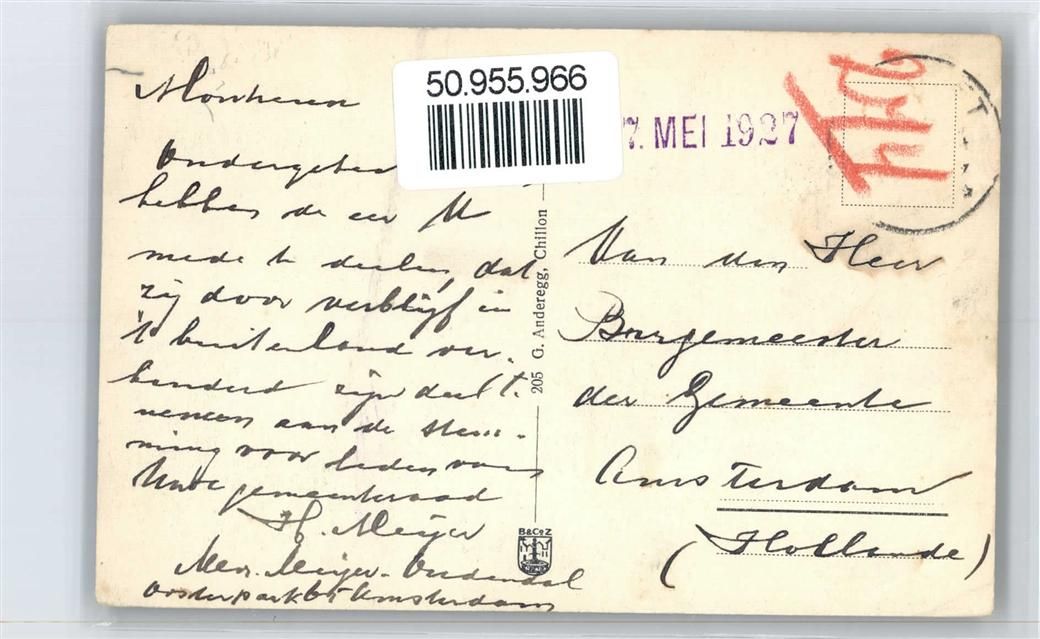 50.955.966
7. MEI 1927
Mijnheer
hebben de eer U
mede te deelen, dat
zij door verblijf in
't buitenland ver-
hinderd zijn deel t.
nemen aan de stem-
ming voor leden van
Uwe gemeenteraad
H. Meijer
Mevr. Meijer-
Oosterpark Amsterdam
205 G. Anderegg, Chillon
B&CoZ
Van den Heer
Burgemeester
der Gemeente
Amsterdam
(Hollande)